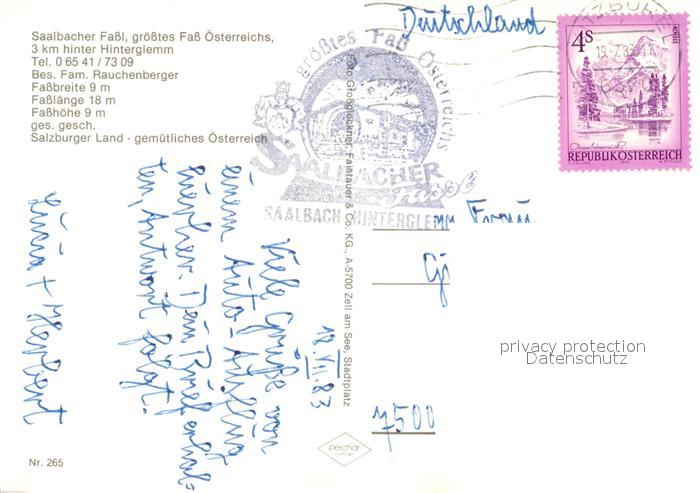 Saalbacher Faßl, größtes Faß Österreichs,
3 km hinter Hinterglemm
Tel. 0 65 41 / 73 09
Bes. Fam. Rauchenberger
Faßbreite 9 m
Faßlänge 18 m
Faßhöhe 9 m
ges. gesch.
Salzburger Land - gemütliches Österreich
größtes Faß Österreichs
SAALBACHER
SAALBACH HINTERGLE
Foto Großglockner, Faistauer & Co. KG., A-5700 Zell am See, Stadtplatz
Deutschland
4S
REPUBLIK ÖSTERREICH
Frau
7500
privacy protection
Datenschutz
18.VII.83
Viele Grüße von
einem Auto-Ausflug
hierher. Dein Brief erhal-
ten, Antwort folgt.
+ Herbert
pechar
Nr. 265